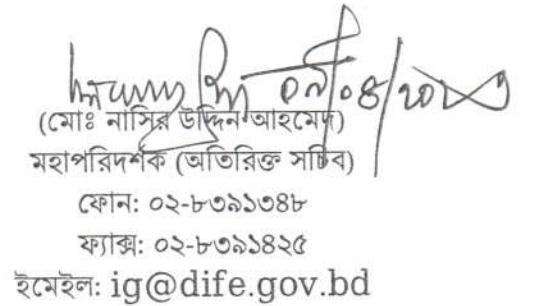 ০৯/০৪/২০২৩
(মোঃ নাসির উদ্দিন আহমেদ)
মহাপরিদর্শক (অতিরিক্ত সচিব)
ফোন: ০২-৮৩৯১৩৪৮
ফ্যাক্স: ০২-৮৩৯১৪২৫
ইমেইল: ig@dife.gov.bd